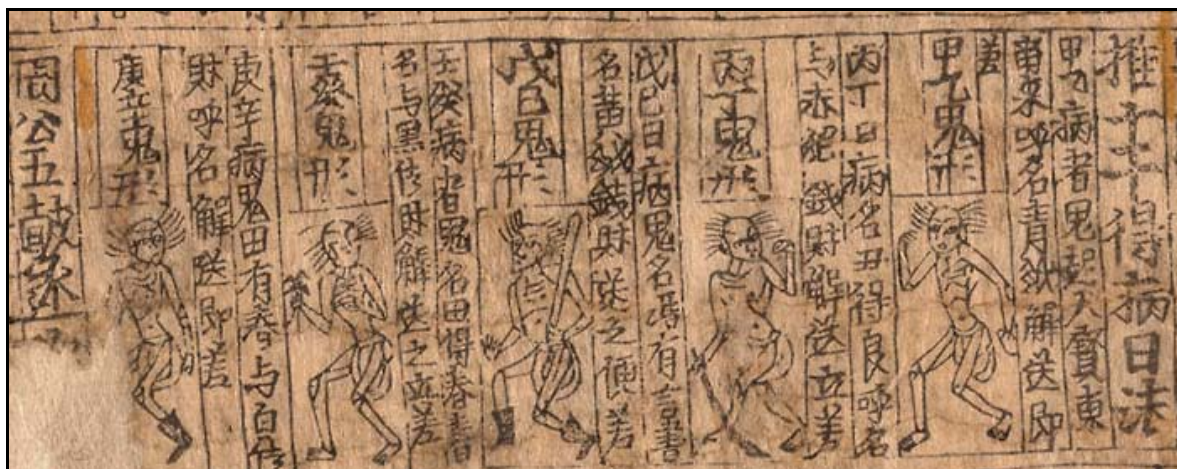 推十干得病日法
甲乙病者鬼起天賢東
東來呼名青錢解送即
差
甲乙鬼形
丙丁日病名丑得良呼名
与赤紙錢財解送立差
丙丁鬼形
戊己日病鬼名馮有言書
名黄錢財送之便差
戊己鬼形
壬癸病者鬼名田得春書
名与黒財解送之立差
壬癸鬼形
庚辛病鬼田有春与百
財呼名解送即差
庚辛鬼形
周公五鼓逐